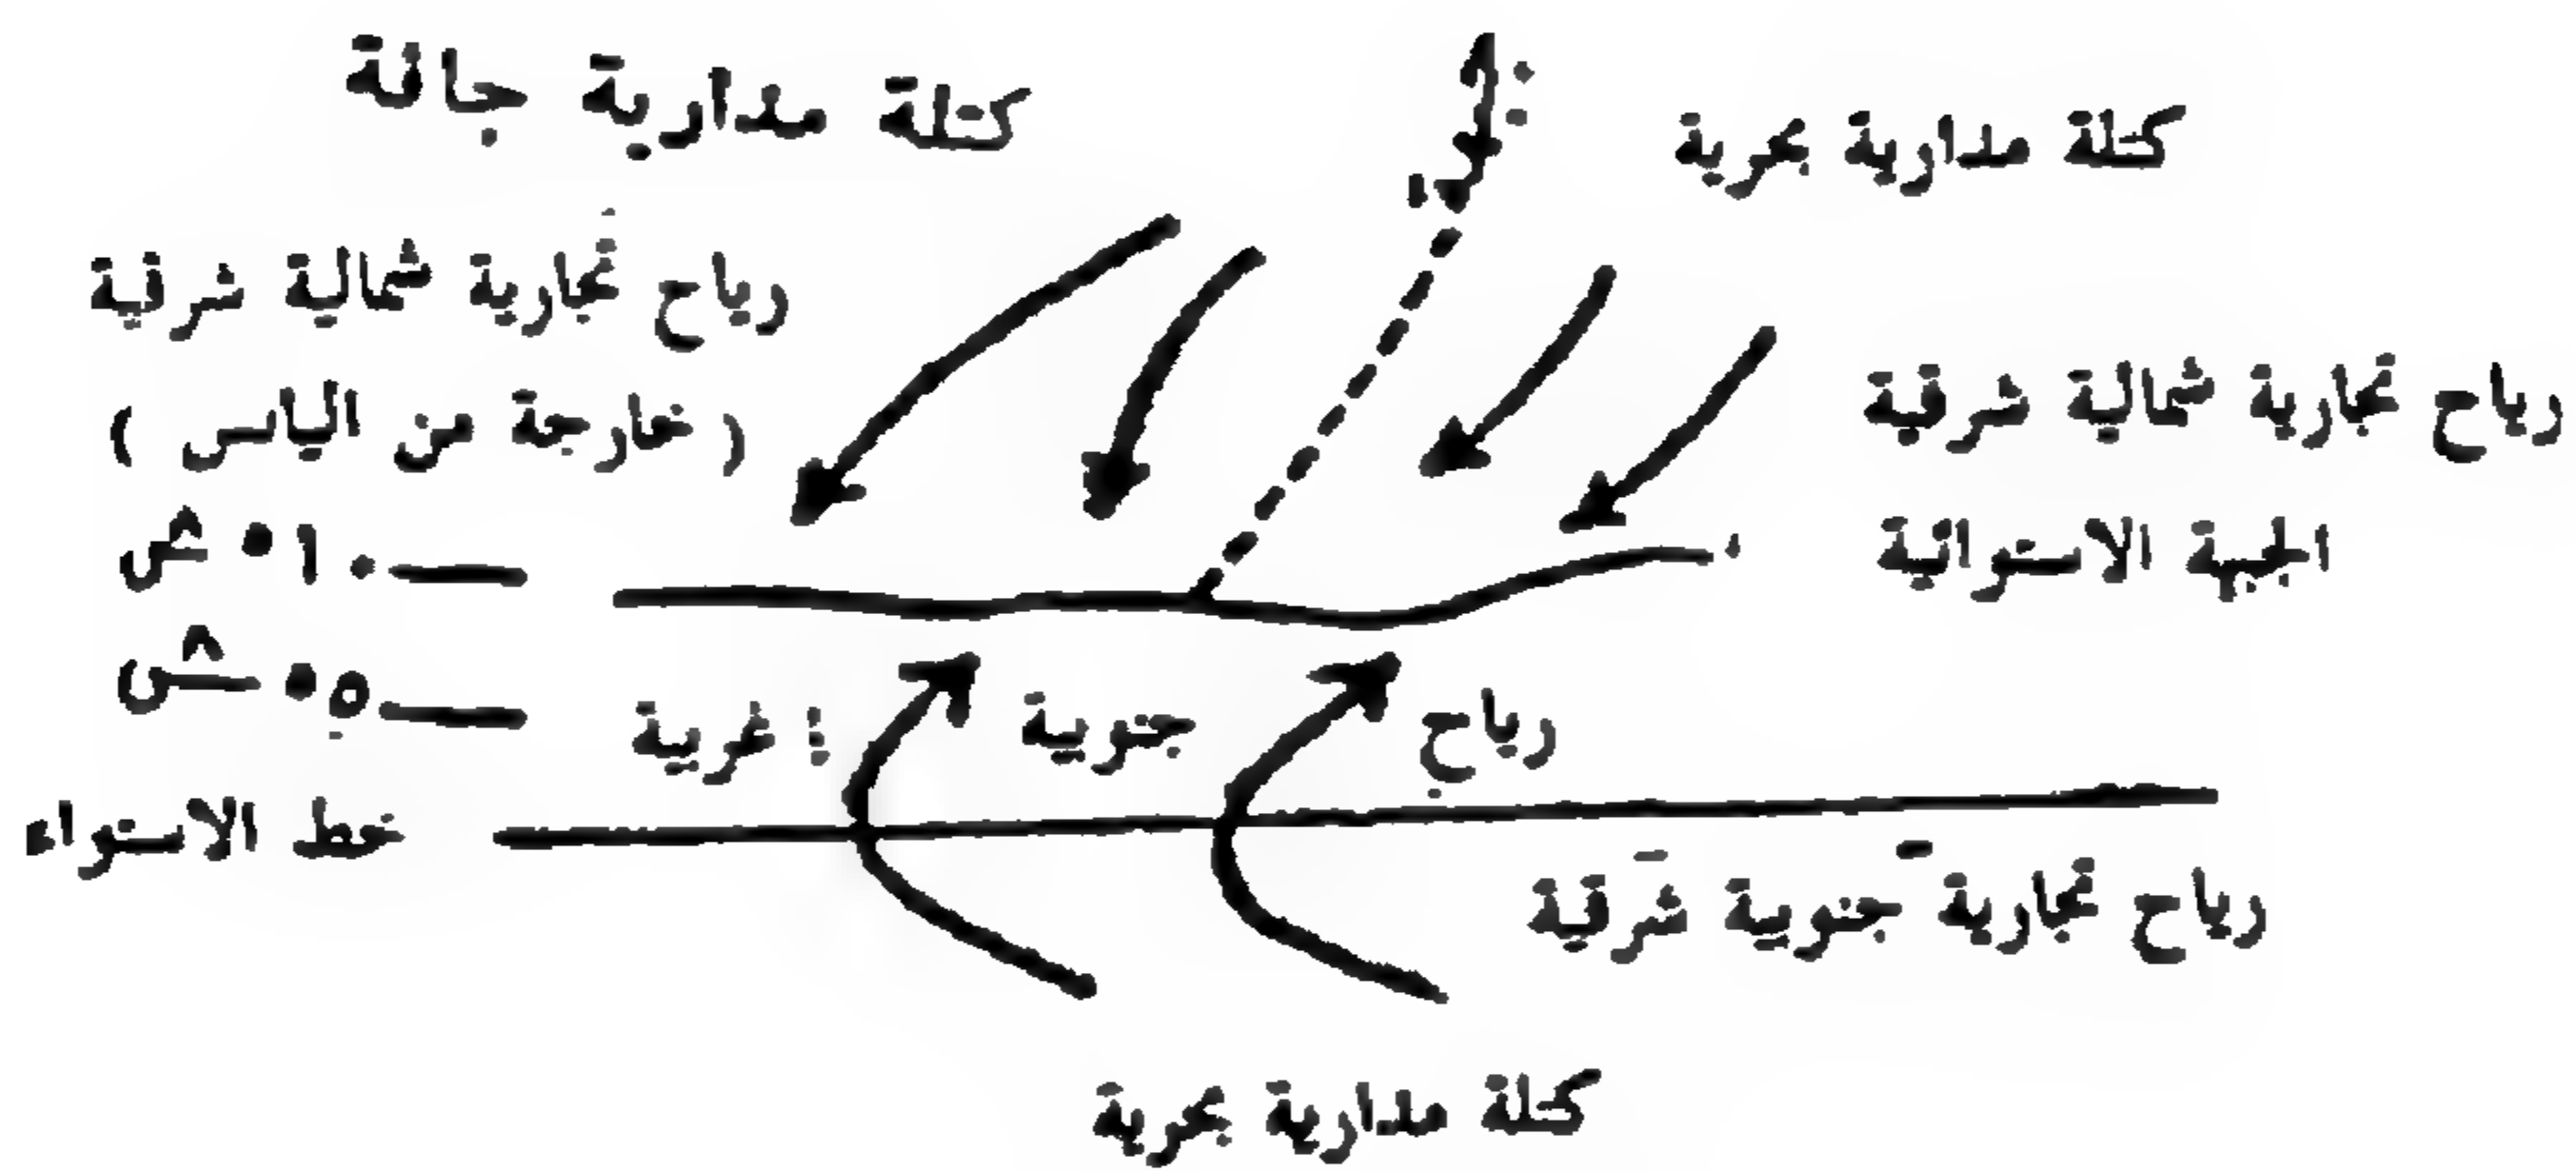 كتلة مدارية جافة
كتلة مدارية بحرية
رياح تجارية شمالية شرقية
( خارجة من اليابس )
رياح تجارية شمالية شرقية
الجبهة الاستوائية
١٠° ش
٥° ش
رياح جنوبية غربية
خط الاستواء
رياح تجارية جنوبية شرقية
كتلة مدارية بحرية